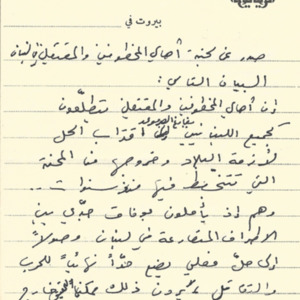 بيروت في
صدر عن لجنة أهالي المخطوفين والمعتقلين في لبنان
البيان التالي:
إن أهالي المخطوفين والمعتقلين يتطلّعون
كجميع اللبنانيين اقتراب الحل
لأزمة البلاد وخروجها من المحنة
التي تتخبّط فيها منذ سنوات ...
وهم إذ يأملون بوفاق جدّي بين
الأطراف المتصارعة في لبنان وصولاً
إلى حلّ فعلي يضع حدّاً نهائيّاً للحرب
والتقاتل، يرون ذلك ممكناً خارج